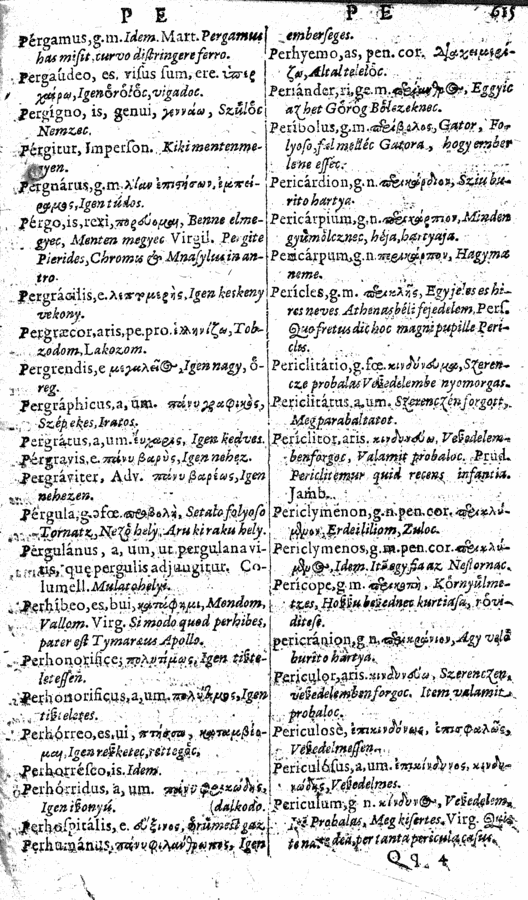 P E
P E 615
Pérgamus, g.m. Idem. Mart. Pergamus
has misit, curvo distringere ferro.
Pergaúdeo, es, risus sum, ere. ὑπερ
χαίρω, Igen örölöc, vigadoc.
Pergigno, is, genui, γεννάω, Szülöc
Nemzec.
Pérgitur, Imperson. Kiki mentenme-
gyen.
Pergnárus, g.m. λίαν
Igen túdos.
Pérgo, is, rexi, πορεύομαι, Benne elme-
gyec, Menten megyec Virgil. Pergite
Pierides, Chromis & Mnasylus in an-
tro.
Pergrácilis, e. λεπτομερὴς, Igen keskeny
vekony.
Pergræcor, aris, pe. pro. ἑλληνίζω, Tob-
zodom, Lakozom.
Pergrendis, e Igen nagy, ö-
reg.
Pergráphicus, a, um. πάνυ γραφικὸς,
Szép ekes, Iratos.
Pergrátus, a, um. εὐχαρις, Igen kedves.
Pérgravis, e. πάνυ βαρὺς, Igen nehez.
Pergráviter, Adv. πάνυ βαρέως, Igen
nehezen.
Pérgula, g. fœ. Setalo folyoso
Tornatz, Nezö hely, Aru ki raku hely.
Pergulánus, a, um, ut pergulana vi-
tis, quę pergulis adjungitur. Co-
lumell. Mulatohelys.
Perhíbeo, es, bui, Mondom,
Vallom. Virg. Si modo quod perhibes,
pater est Tymaræus Apollo.
Perhonorificè, πολυτίμως, Igen tiszte-
letessen.
Perhonorificus, a, um. Igen
tiszteletes.
Perhórreo, es, ui,
Igen rettegöc,
Perhorrésco, is. Idem.
Perhórridus, a, um. πάνυ φρικώδης,
Igen iszonyú. (dalkodo.
Perhospitális, e. εὔξινος,
Perhumánus, πάνυ φιλάνθρωπος, Igen
emberseges.
Perhyemo, as, pen. cor.
Altal teleloc.
Periánder, ri, ge. m. Eggyic
az het Görög Bölczeknec.
Períbolus, g.m. περίβολος, Gator, Fo-
lyoso, fel melléc Gatora, hogy ember
lene essec.
Pericárdion, g.n. περικάρδιον, Sziu bu-
rito hartya.
Pericárpium, g.n. περικάρπιον, Minden
gyümölcznec, héja, hartyaja.
Pericárpum, g.n. περικάρπον, Hagyma
neme.
Péricles, g.m. περικλῆς, Egy jeles es hi-
res neves Athenas béli fejedelem, Pers.
Quo fretus dic hoc magni pupille Peri-
clis.
Periclitátio, g.fœ. κινδύνευμα, Szeren-
cze probalas Veszedelembe nyomorgas.
Periclitátus, a, um. Szerenczén forgott,
Meg parabaltatot.
Periclitor, aris. κινδυνεύω, Veszedelem-
ben forgoc, Valamit probaloc. Prud.
Periclitemur quid recens infantia.
Jamb.
Periclýmenon, g.n. pen. cor. περικλύ-
μενον, Erdei liliom, Zuloc.
Periclymenos, g.m. pen. cor. περικλύ-
Idem. Item egy fia az Nestornac.
Pericope, g.m. περικοπὴ, Környülme-
tzes, Hosszu beszednec kurtiasa, rövi-
ditese.
pericránion, g.n. περικράνιον, Agy velö
burito hartya.
Periculor, aris. κινδυνεύω, Szerenczen,
veszedelemben forgoc. Item valamit
probaloc.
Periculosè, ἐπικινδύνως, ἐπισφαλῶς,
Veszedelmessen.
Periculósus, a, um. ἐπικίνδυνος, κινδυ-
νώδης, Veszedelmes.
Periculum, g.n. Veszedelem,
Probalas, Meg kisertes. Virg. Quis
te nate dea, per tanta pericula casus.
Qq. 4